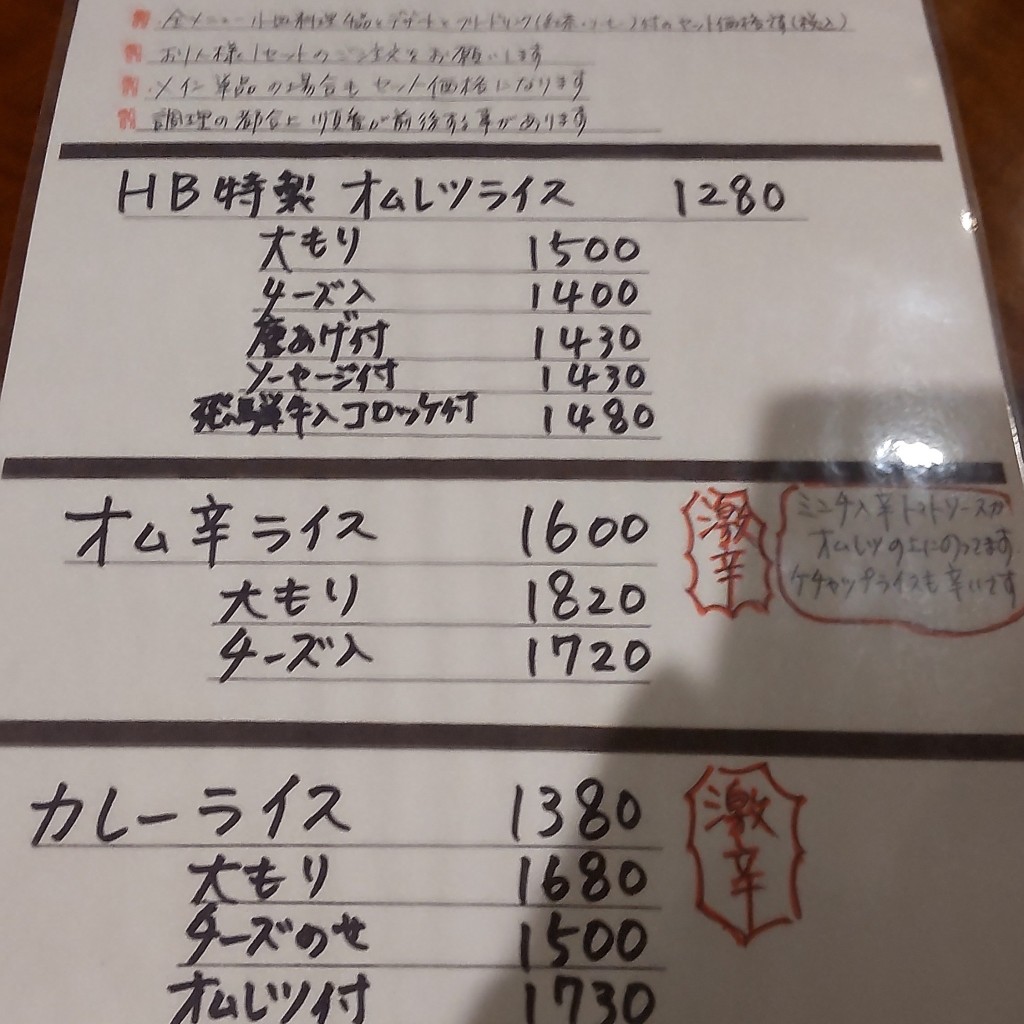 全メニュー小皿料理4品とデザートとフリードリンク(紅茶・コーヒー)付のセット価格です(税込)
お1人様、1セットのご注文をお願いします
メイン単品の場合もセット価格になります
調理の都合上順番が前後する事があります
HB特製 オムレツライス 1280
大もり 1500
チーズ入 1400
唐あげ付 1430
ソーセージ付 1430
飛騨牛入コロッケ付 1480
オム辛ライス 1600
激辛
ミンチ入辛トマトソースが
オムレツの上にのってます
ケチャップライスも辛いです
大もり 1820
チーズ入 1720
カレーライス 1380
激辛
大もり 1680
チーズのせ 1500
オムレツ付 1730